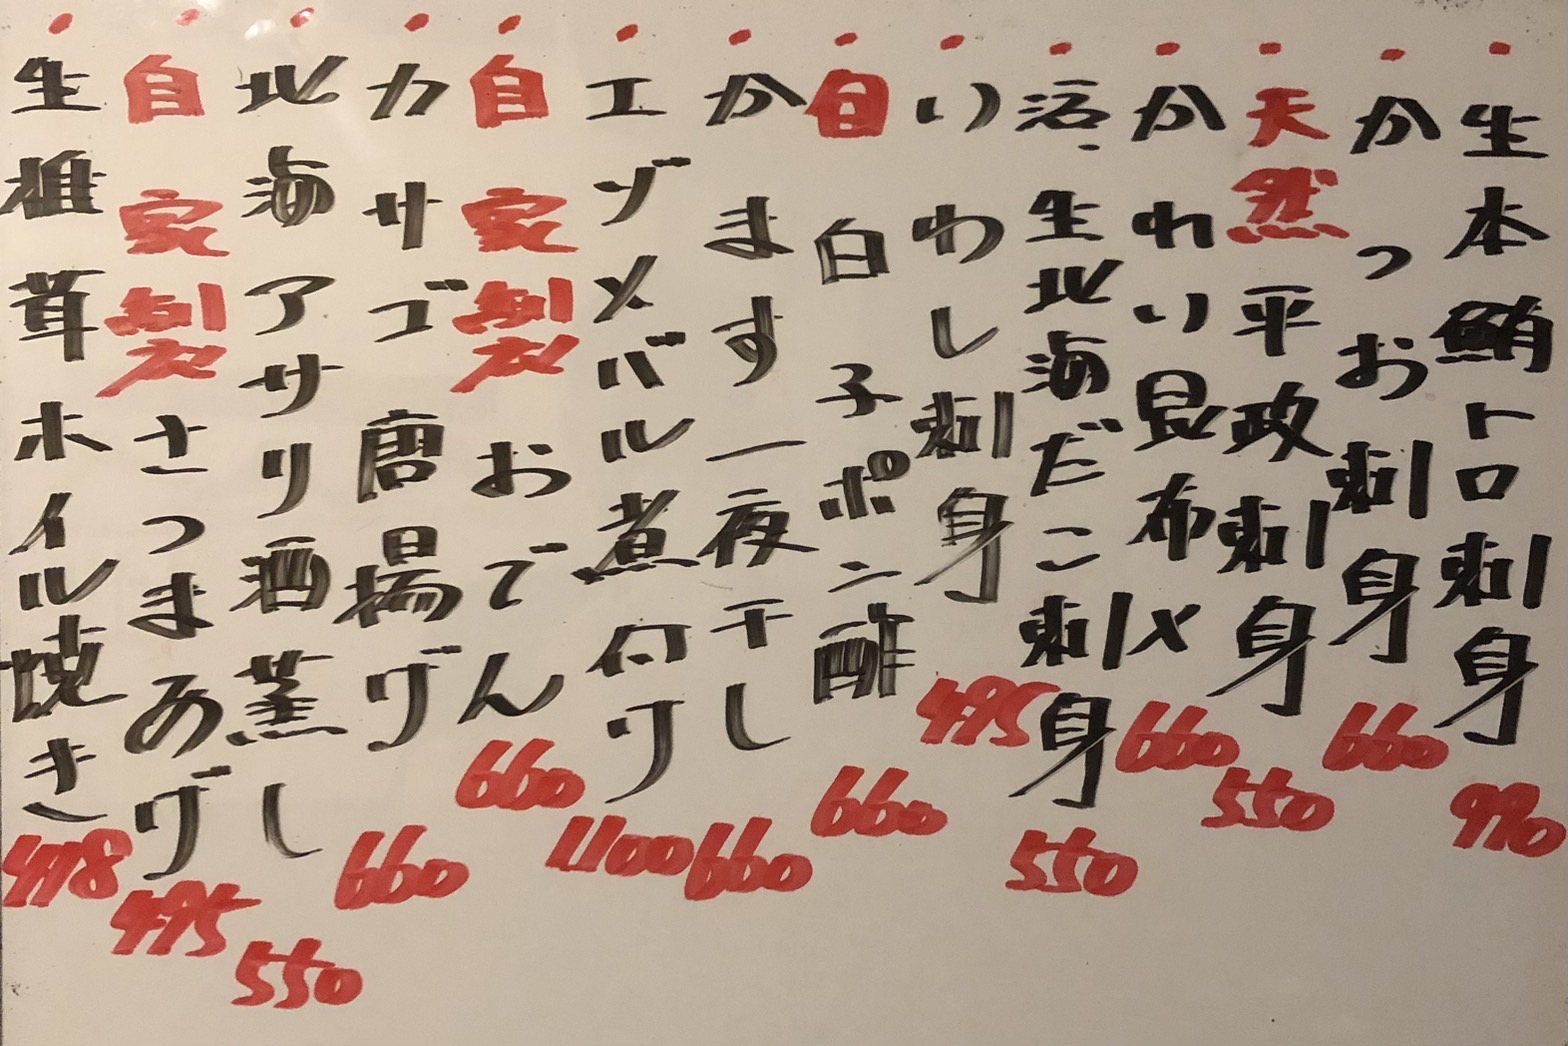 ・生本鮪トロ刺身 970
・かつお刺身 660
・天然平政刺身 550
・かれい昆布〆 660
・活・生北海だこ刺身 550
・いわし刺身 495
・白子ポン酢 660
・かます一夜干し 660
・エゾメバル煮付け 1100
・自家製おでん 660
・カサゴ唐揚げ 660
・北海アサリ酒蒸し 550
・自家製さつまあげ 495
・生椎茸ホイル焼き 418